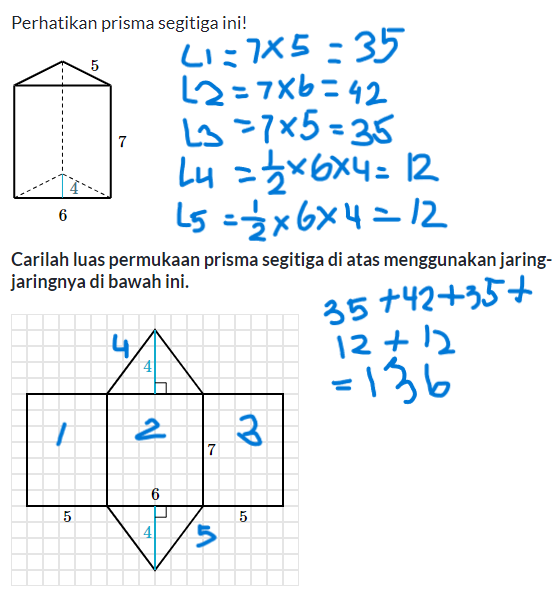 Perhatikan prisma segitiga ini!
5
7
4
6
L1 = 7x5 = 35
L2 = 7x6 = 42
L3 = 7x5 = 35
L4 = 1/2 x 6 x 4 = 12
L5 = 1/2 x 6 x 4 = 12
Carilah luas permukaan prisma segitiga di atas menggunakan jaring-
jaringnya di bawah ini.
35 + 42 + 35 +
12 + 12
= 136
4
4
1
2
3
7
6
5
5
4
5